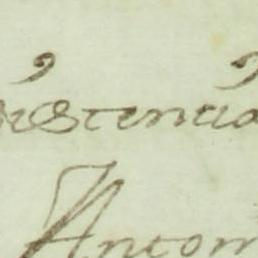 sistencia
Anton